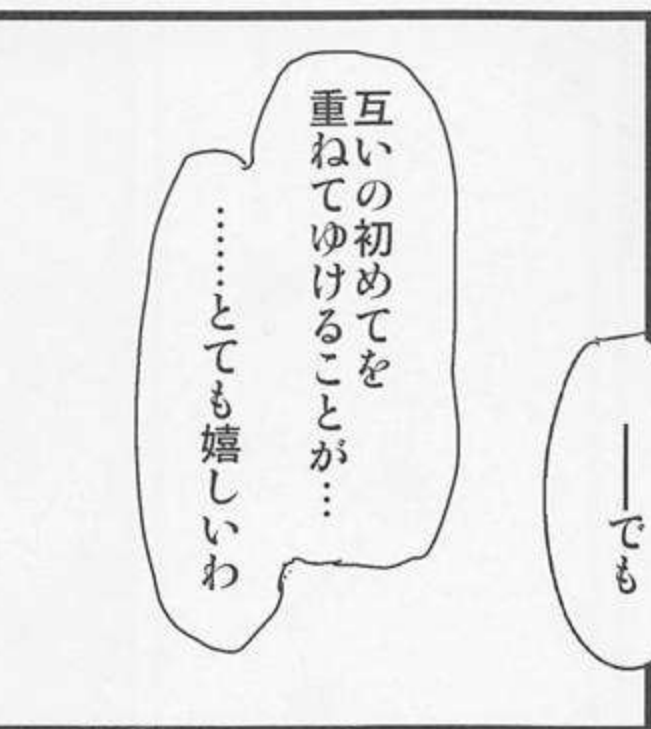 ――でも
互いの初めてを
重ねてゆけることが…
……とても嬉しいわ